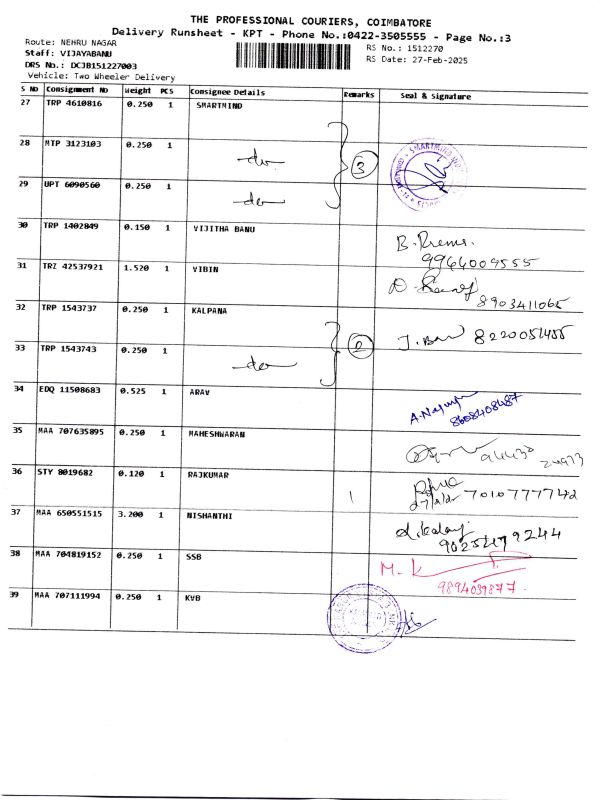 THE PROFESSIONAL COURIERS, COIMBATORE
Delivery Runsheet - KPT - Phone No.:0422-3505555 - Page No.:3
Route: NEHRU NAGAR
RS No.: 1512270
Staff: VIJAYABANU
RS Date: 27-Feb-2025
DRS No.: DCJB151227003
Vehicle: Two Wheeler Delivery
S NO Consignment NO Weight PCS Consignee Details Remarks Seal & Signature
27 TRP 4610816 0.250 1 SMARTMIND
28 MTP 3123103 0.250 1 -do-
3
29 UPT 6090560 0.250 1 -do-
30 TRP 1402849 0.150 1 VIJITHA BANU
B. Prema.
9944009555
31 TRZ 42537921 1.520 1 VIBIN
8903411065
32 TRP 1543737 0.250 1 KALPANA
2 J. Banu 8220051455
33 TRP 1543743 0.250 1 -do-
34 EDQ 11508683 0.525 1 ARAV
8608408487
35 MAA 707635895 0.250 1 MAHESHWARAN
36 STY 8019682 0.120 1 RAJKUMAR
1 7010777742
37 MAA 650551515 3.200 1 NISHANTHI
38 MAA 704819152 0.250 1 SSB
M. K
9894039877.
39 MAA 707111994 0.250 1 KVB